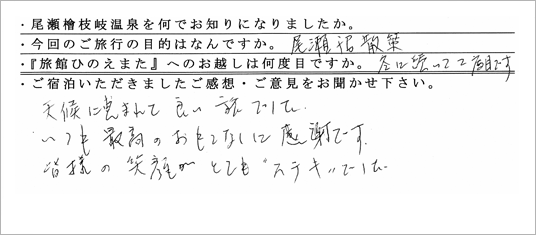 ・尾瀬檜枝岐温泉を何でお知りになりましたか。
・今回のご旅行の目的はなんですか。 尾瀬沼散策
・『旅館ひのえまた』へのお越しは何度目ですか。 冬に続いて2度目です
・ご宿泊いただきましたご感想・ご意見をお聞かせ下さい。
天候に恵まれて良い旅でした。
いつも最高のおもてなしに感謝です。
皆様の笑顔がとても“ステキ”でした。